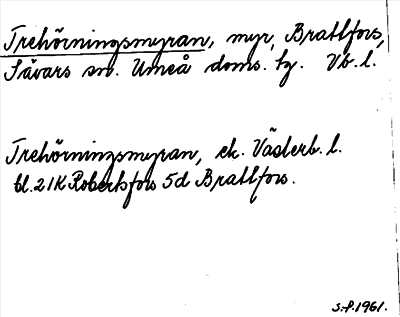 Trehörningsmyran, myr, Brattfors,
Sävars sn. Umeå doms. tg. Vb. l.
Trehörningsmyran, ek. Västerb. l.
bl. 21K Robertsfors 5d Brattfors.
S.P. 1961.